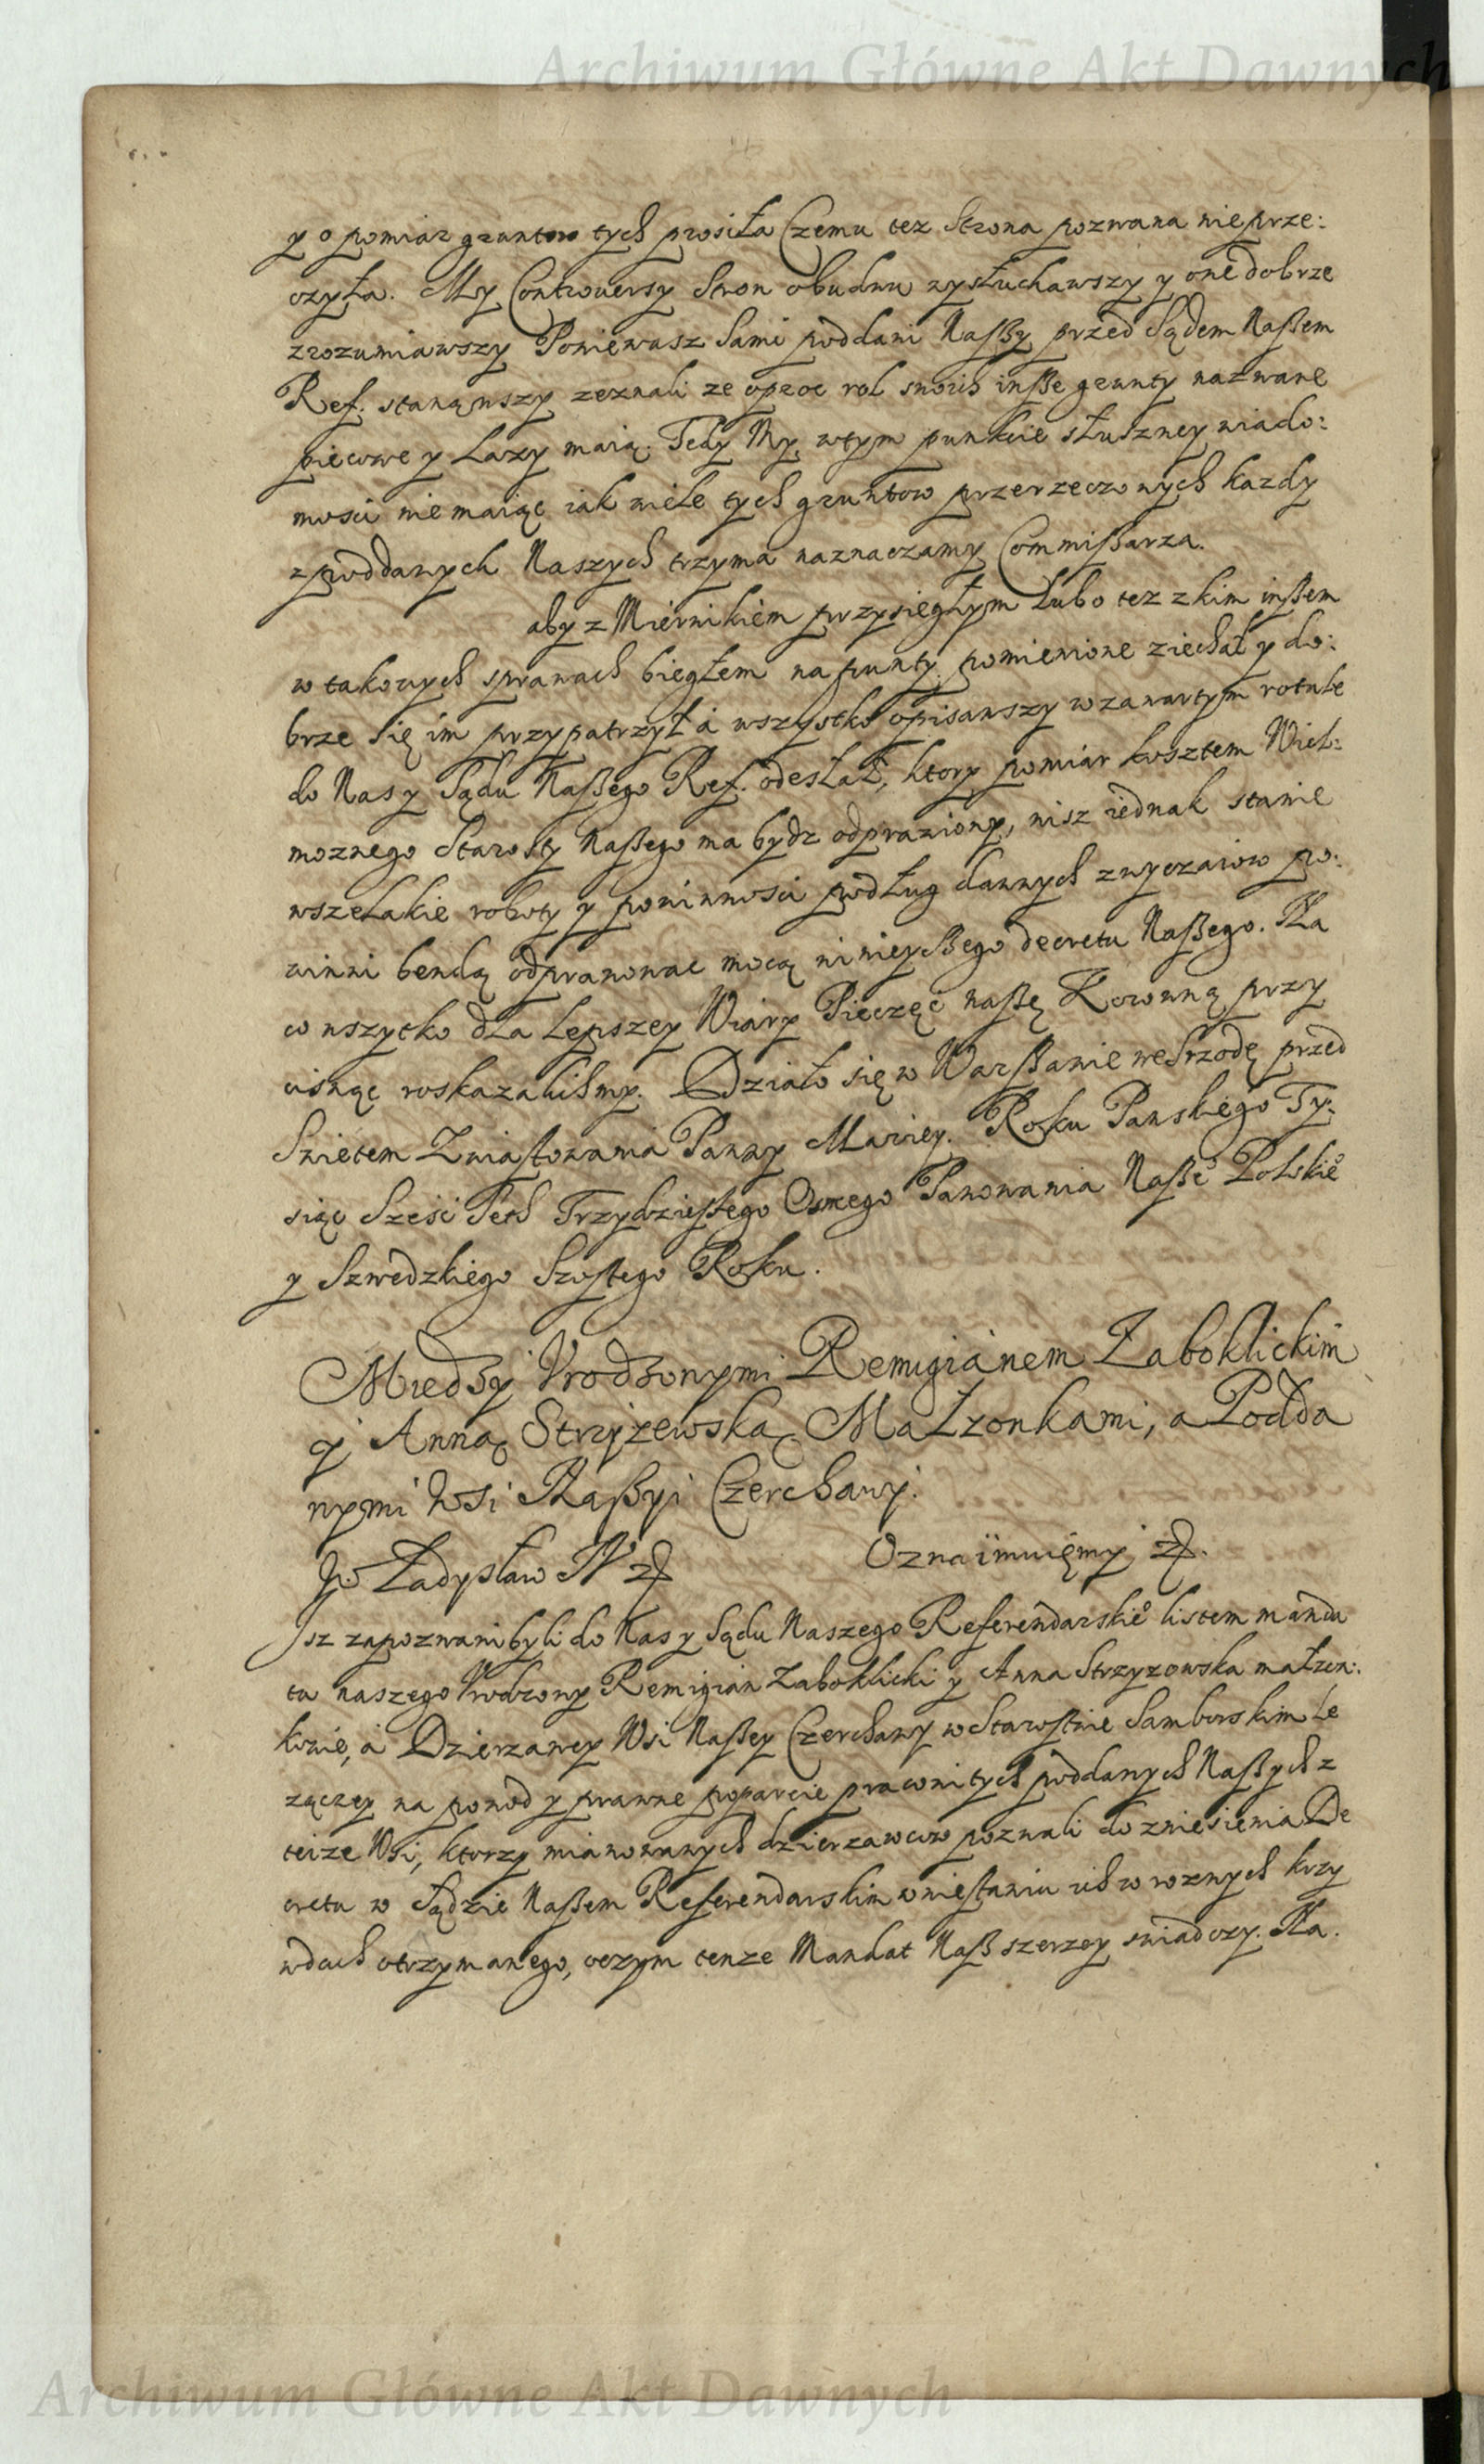 Archiwum Główne Akt Dawnych
y o pomiar gruntow tych prosiła Czemu tez Strona pozwana nieprze:
czyła. My Controuersy Stron obudwu wysłuchawszy y one dobrze
zrozumiawszy Poniewasz Sami poddani Naßy przed Sądem Naßem
Ref. stanąwszy zeznali ze oproc rol swoich inße grunty nazwane
piecowe y Łazy maią. Tedy My wtym punkcie słuszney wiado:
mosci nie maiąc iak wiele tych gruntow przerzeczonych kazdy
z poddanych Naszych trzyma naznaczamy Commißarza.
aby z Miernikiem przysięgłym lubo tez z kim inßem
w takowych sprawach biegłem na grunty pomienione ziechał y do:
brze się im przypatrzył a wszystko opisawszy w zawartym rotule
do Nas y Sądu Naßego Ref. odesłał, ktory pomiar kosztem Wiel:
moznego Starosty Naßego ma bydz odprawiony, nisz iednak stanie
wszelakie roboty y powinnosci podług dawnych zwyczaiow po:
winni bendą odprawowac mocą ninieyßego decretu Naßego. Na
co wszytko dla lepszey Wiary Pieczęc naßę Koronną przy
cisnąc roskazalismy. Działo się w Warßawie we Srzodę przed
Swiętem Zwiastowania Panny Mariey. Roku Panskiego Ty:
siąc Sześć Seth Trzydziestego Osmego Panowania Naße͞o Polskie͞o
y Szwedzkiego Szostego Roku.
Miedzy Urodzonymi Remigianem Zaboklickim
y Anną Stryżewską Małzonkami, a Podda
nymi Wsi Naßyi Czerchawy.
Władysław IV etc Oznaimuięmy etc.
Isz zapozwani byli do Nas y Sądu Naszego Referendarskie͞o listem manda
tu naszego Urodzony Remigian Zaboklicki y Anna Strzyzowska małzon:
kowie, a Dzierzawcy Wsi Naßey Czerchawy w Starostwie Samborskim le
zączey na powod y prawne poparcie pracowitych poddanych Naßych z
teize Wsi, ktorzy mianowanych dzierzawcow pozwali do zniesienia De
cretu w Sądzie Naßem Referendarskim w niestaniu ich w roznych krzy
wdach otrzymanego, oczym tenze Mandat Naß szerzey swiadczy. Na.
Archiwum Główne Akt Dawnych